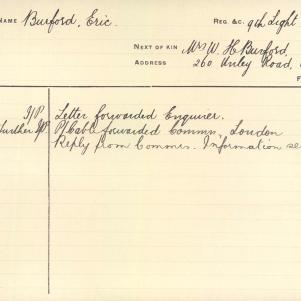 NAME Burford, Eric. REG. &C. 9th Light
NEXT OF KIN Mrs W. H. Burford,
ADDRESS 260 Unley Road,
I/P. Letter forwarded Enquirer.
P/Cable forwarded Commn, London
Reply from Commrs. Information se